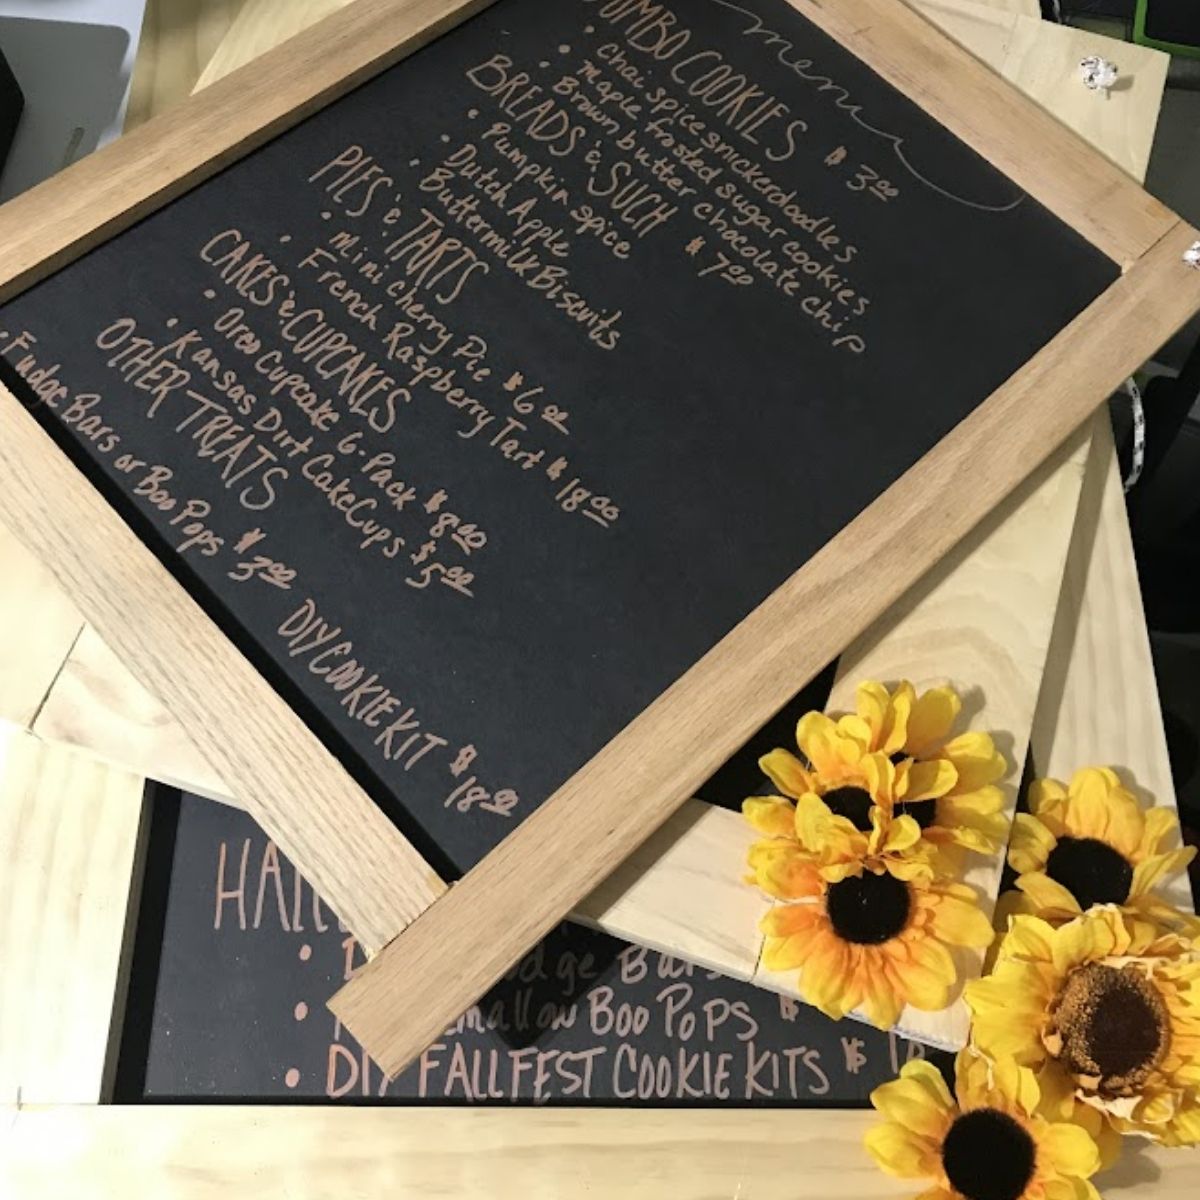 menu
JUMBO COOKIES $3.00
• Chai spice snickerdoodles
• Maple frosted sugar cookies
• Brown butter chocolate chip
BREADS & SUCH $7.00
• Pumpkin spice
• Dutch Apple
• Buttermilk Biscuits
PIES & TARTS
• Mini cherry Pie $6.00
• French Raspberry Tart $18.00
CAKES & CUPCAKES
• Oreo Cupcake 6-Pack $8.00
• Kansas Dirt Cake Cups $5.00
OTHER TREATS
• Fudge Bars or Boo Pops $3.00
DIY COOKIE KIT $18.00
• Bars
• Boo Pops $
• DIY FALLFEST COOKIE KITS $